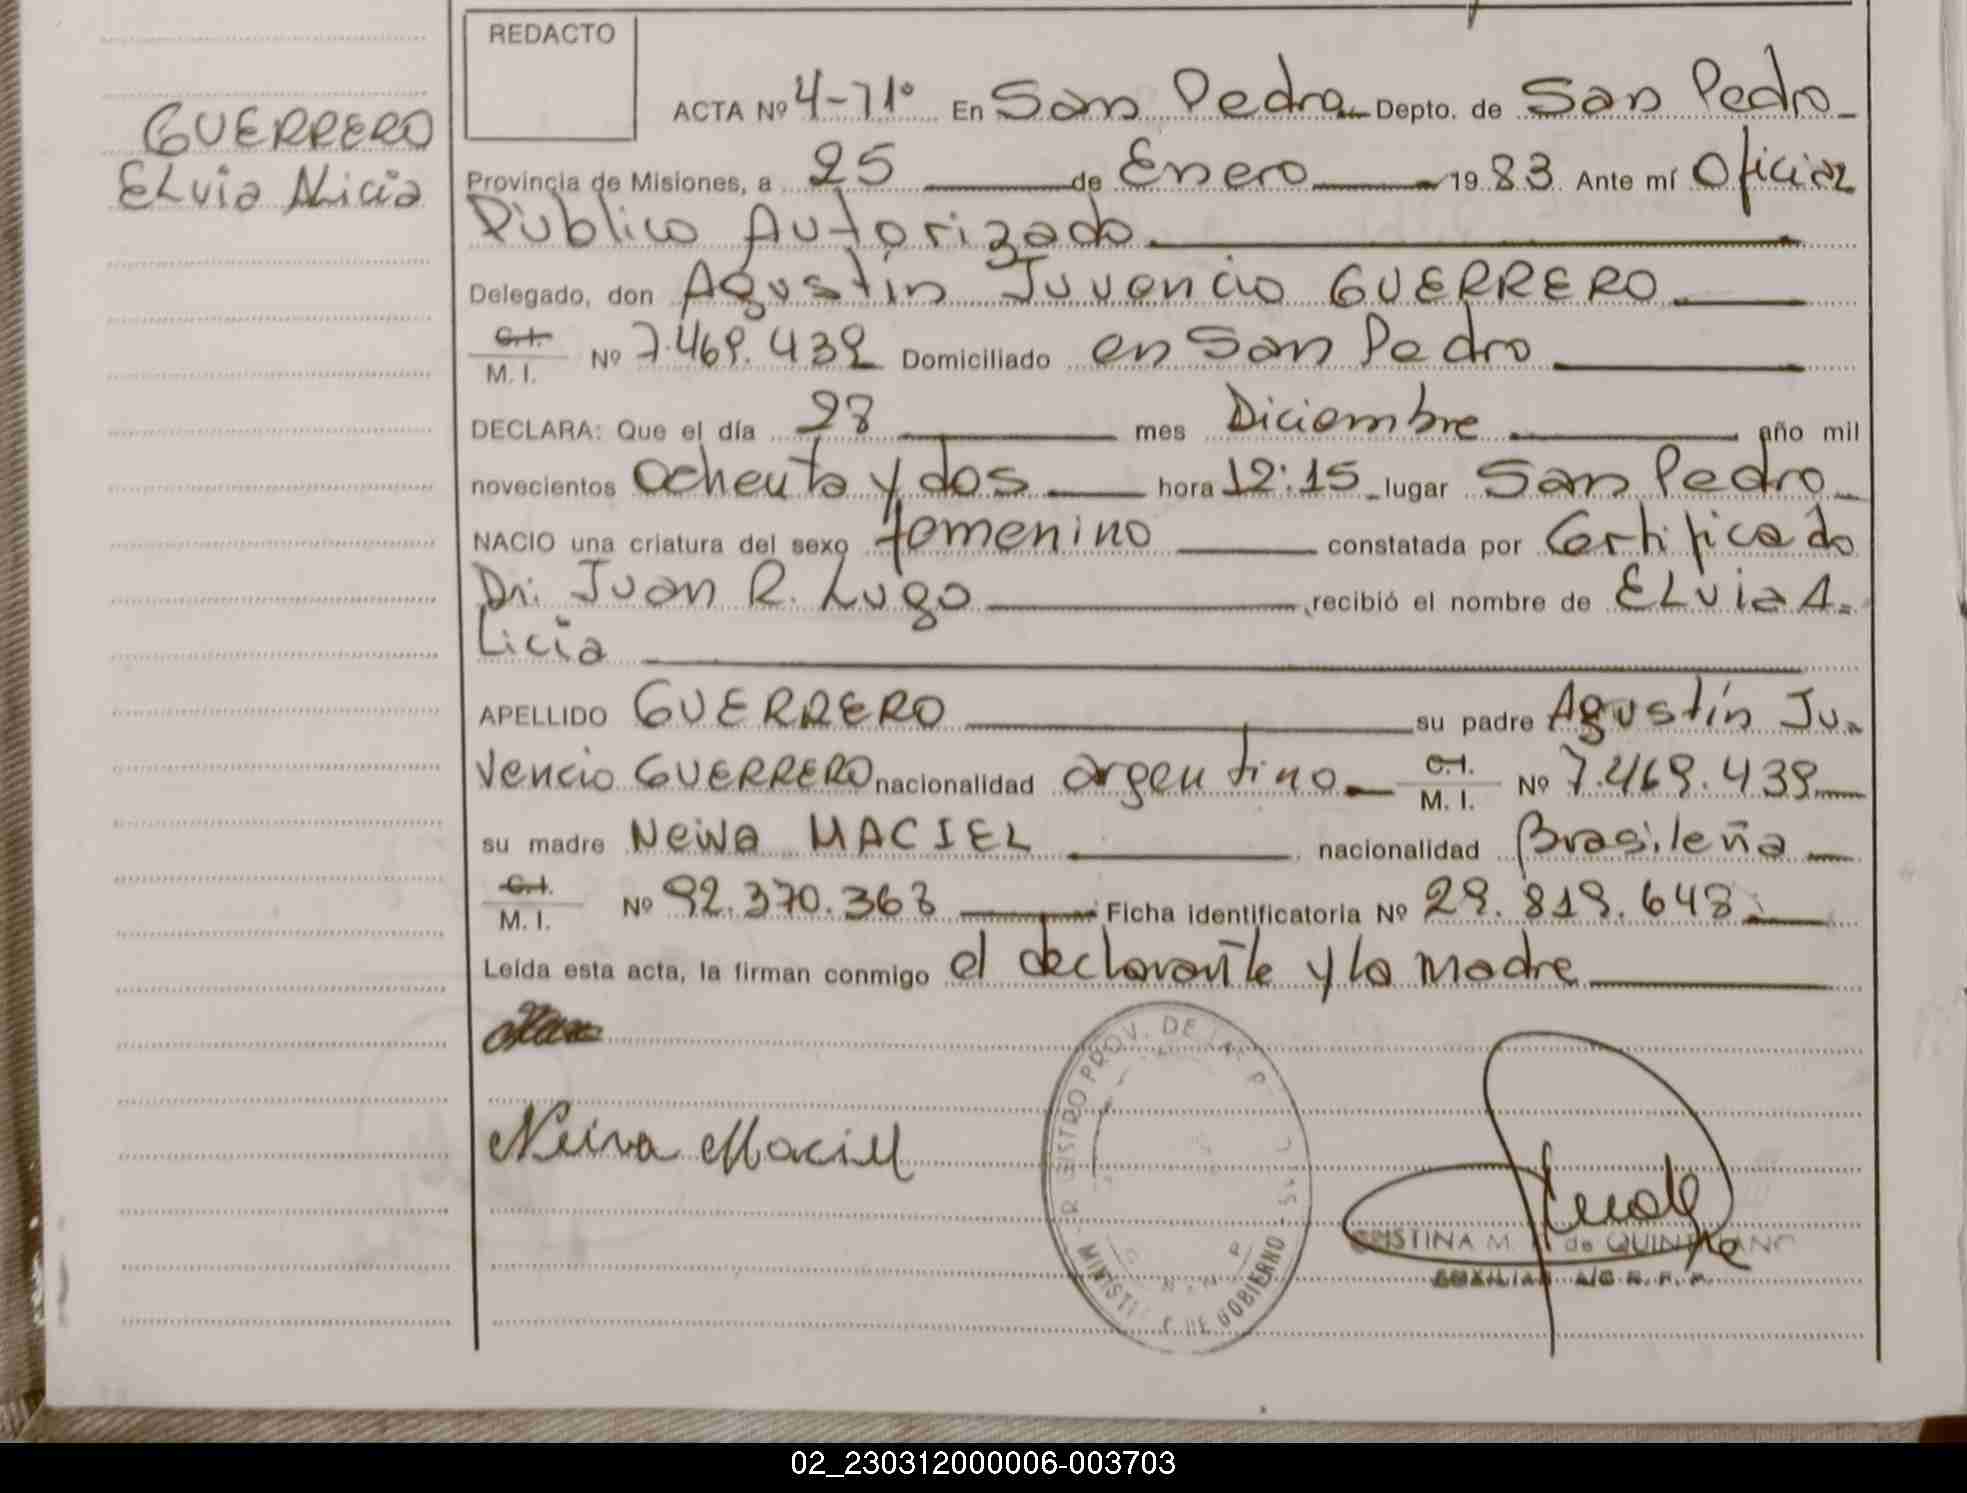 REDACTO
ACTA Nº 4-71º En San Pedro Depto. de San Pedro
GUERRERO
Elvia Alicia
Provincia de Misiones, a 25 de Enero 1983 Ante mí Oficial
Público Autorizado
Delegado, don Agustín Juvencio GUERRERO
C.I.
M. I. Nº 7.469.439 Domiciliado en San Pedro
DECLARA: Que el día 28 mes Diciembre año mil
novecientos ochenta y dos hora 12:15 lugar San Pedro
NACIO una criatura del sexo femenino constatada por Certificado
Dr. Juan R. Lugo recibió el nombre de Elvia A=
licia
APELLIDO GUERRERO su padre Agustín Ju=
vencio GUERRERO nacionalidad argentino C.I.
M. I. Nº 7.469.439
su madre Neiva MACIEL nacionalidad Brasileña
C.I.
M. I. Nº 92.370.368 Ficha identificatoria Nº 29.819.648
Leída esta acta, la firman conmigo el declarante y la madre
Neiva Maciel
REGISTRO PROV. DE LAS P
MINISTERIO DE GOBIERNO
CRISTINA M. de QUINTANO
AUXILIAR A/C R. P. P.
02_230312000006-003703